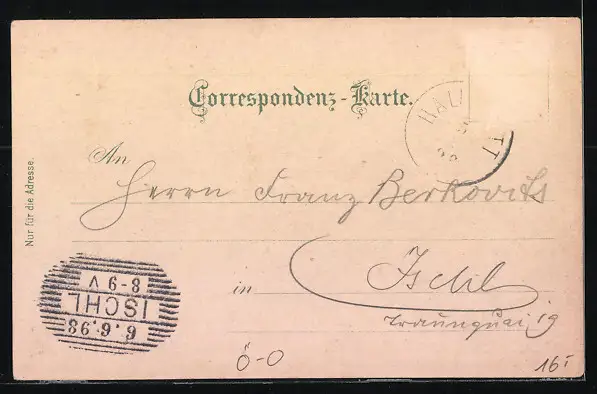 Correspondenz-Karte.
HALL TT
An
Herrn Franz Berkovits
in Ischl
Traunquai 19
Nur für die Adresse.
8-9 V
ISCHL
6.6.98
Ö-O
16